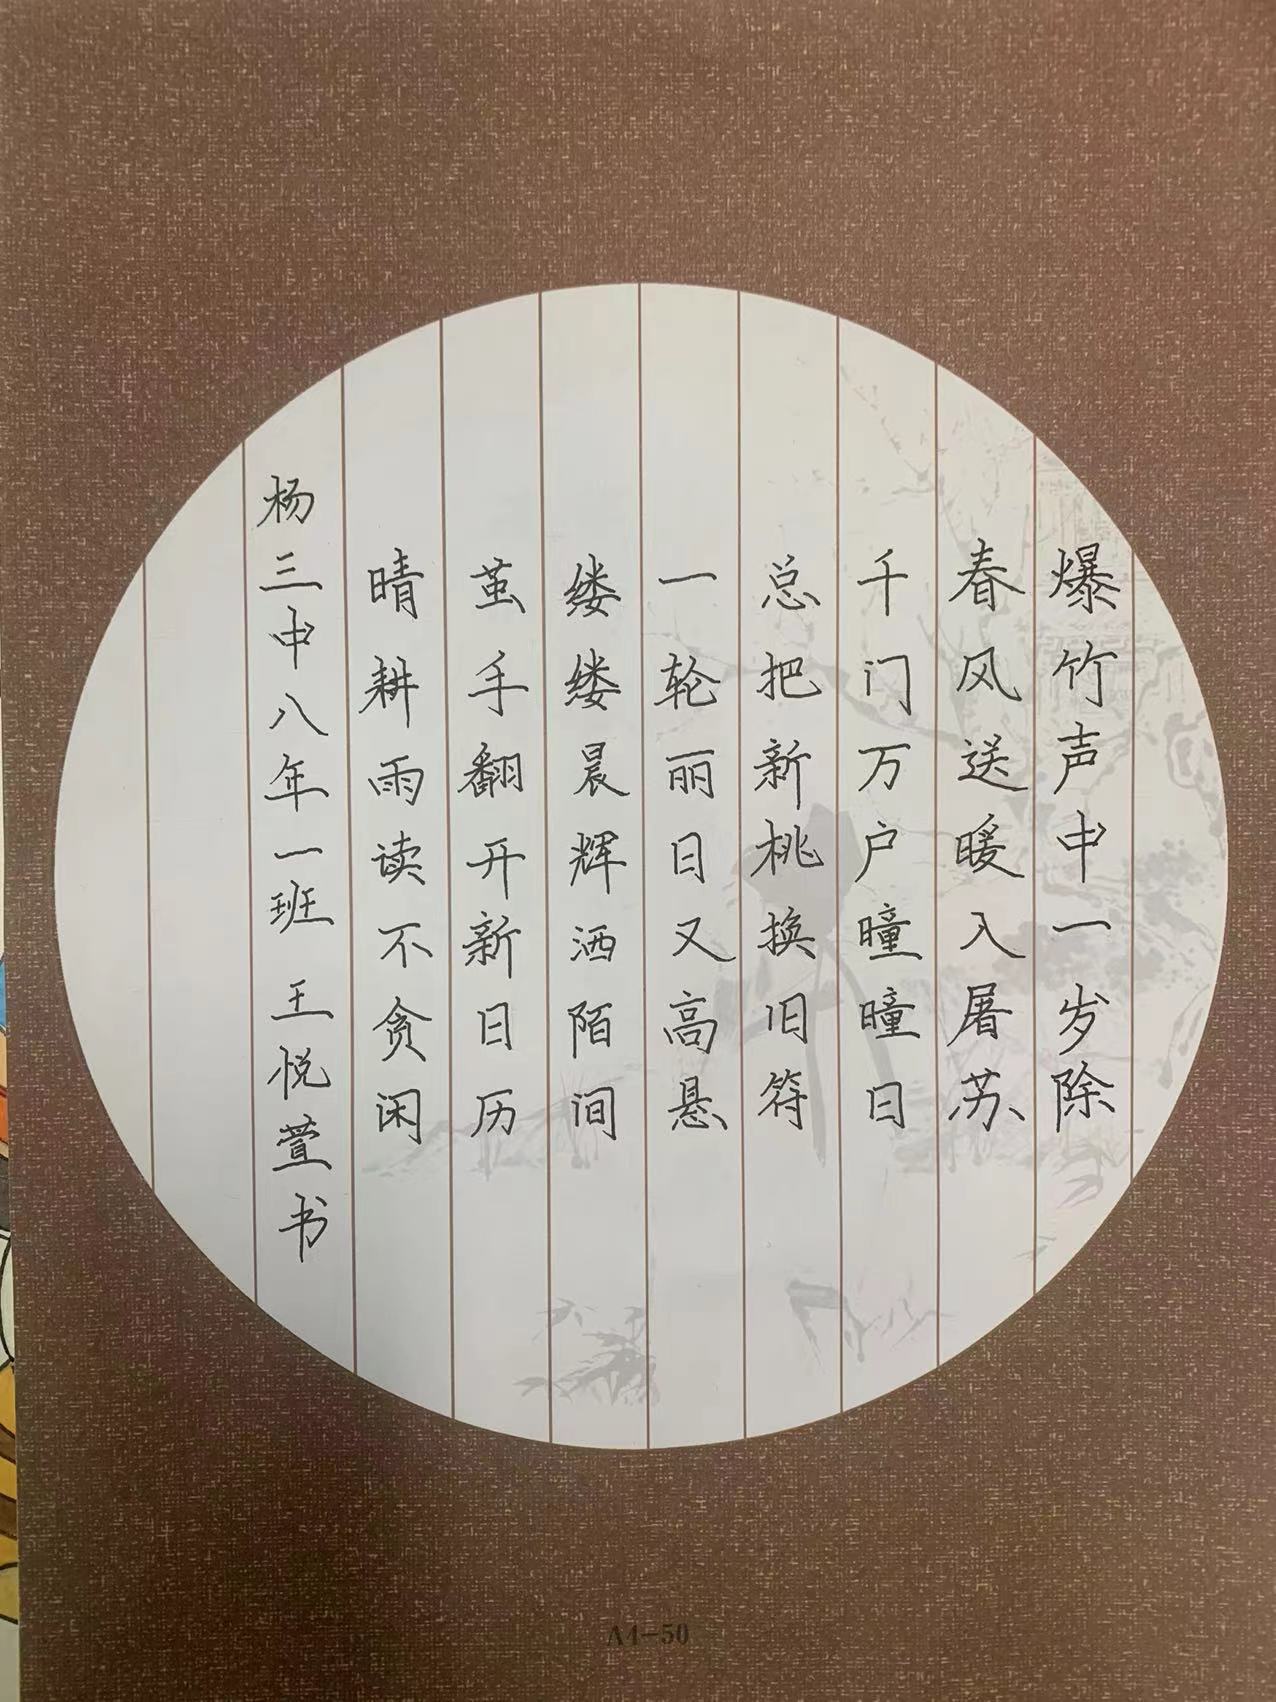 爆竹声中一岁除
春风送暖入屠苏
千门万户曈曈日
总把新桃换旧符
一轮丽日又高悬
缕缕晨辉洒陌间
茧手翻开新日历
晴耕雨读不贪闲
杨三中八年一班 王悦萱书
A4-50